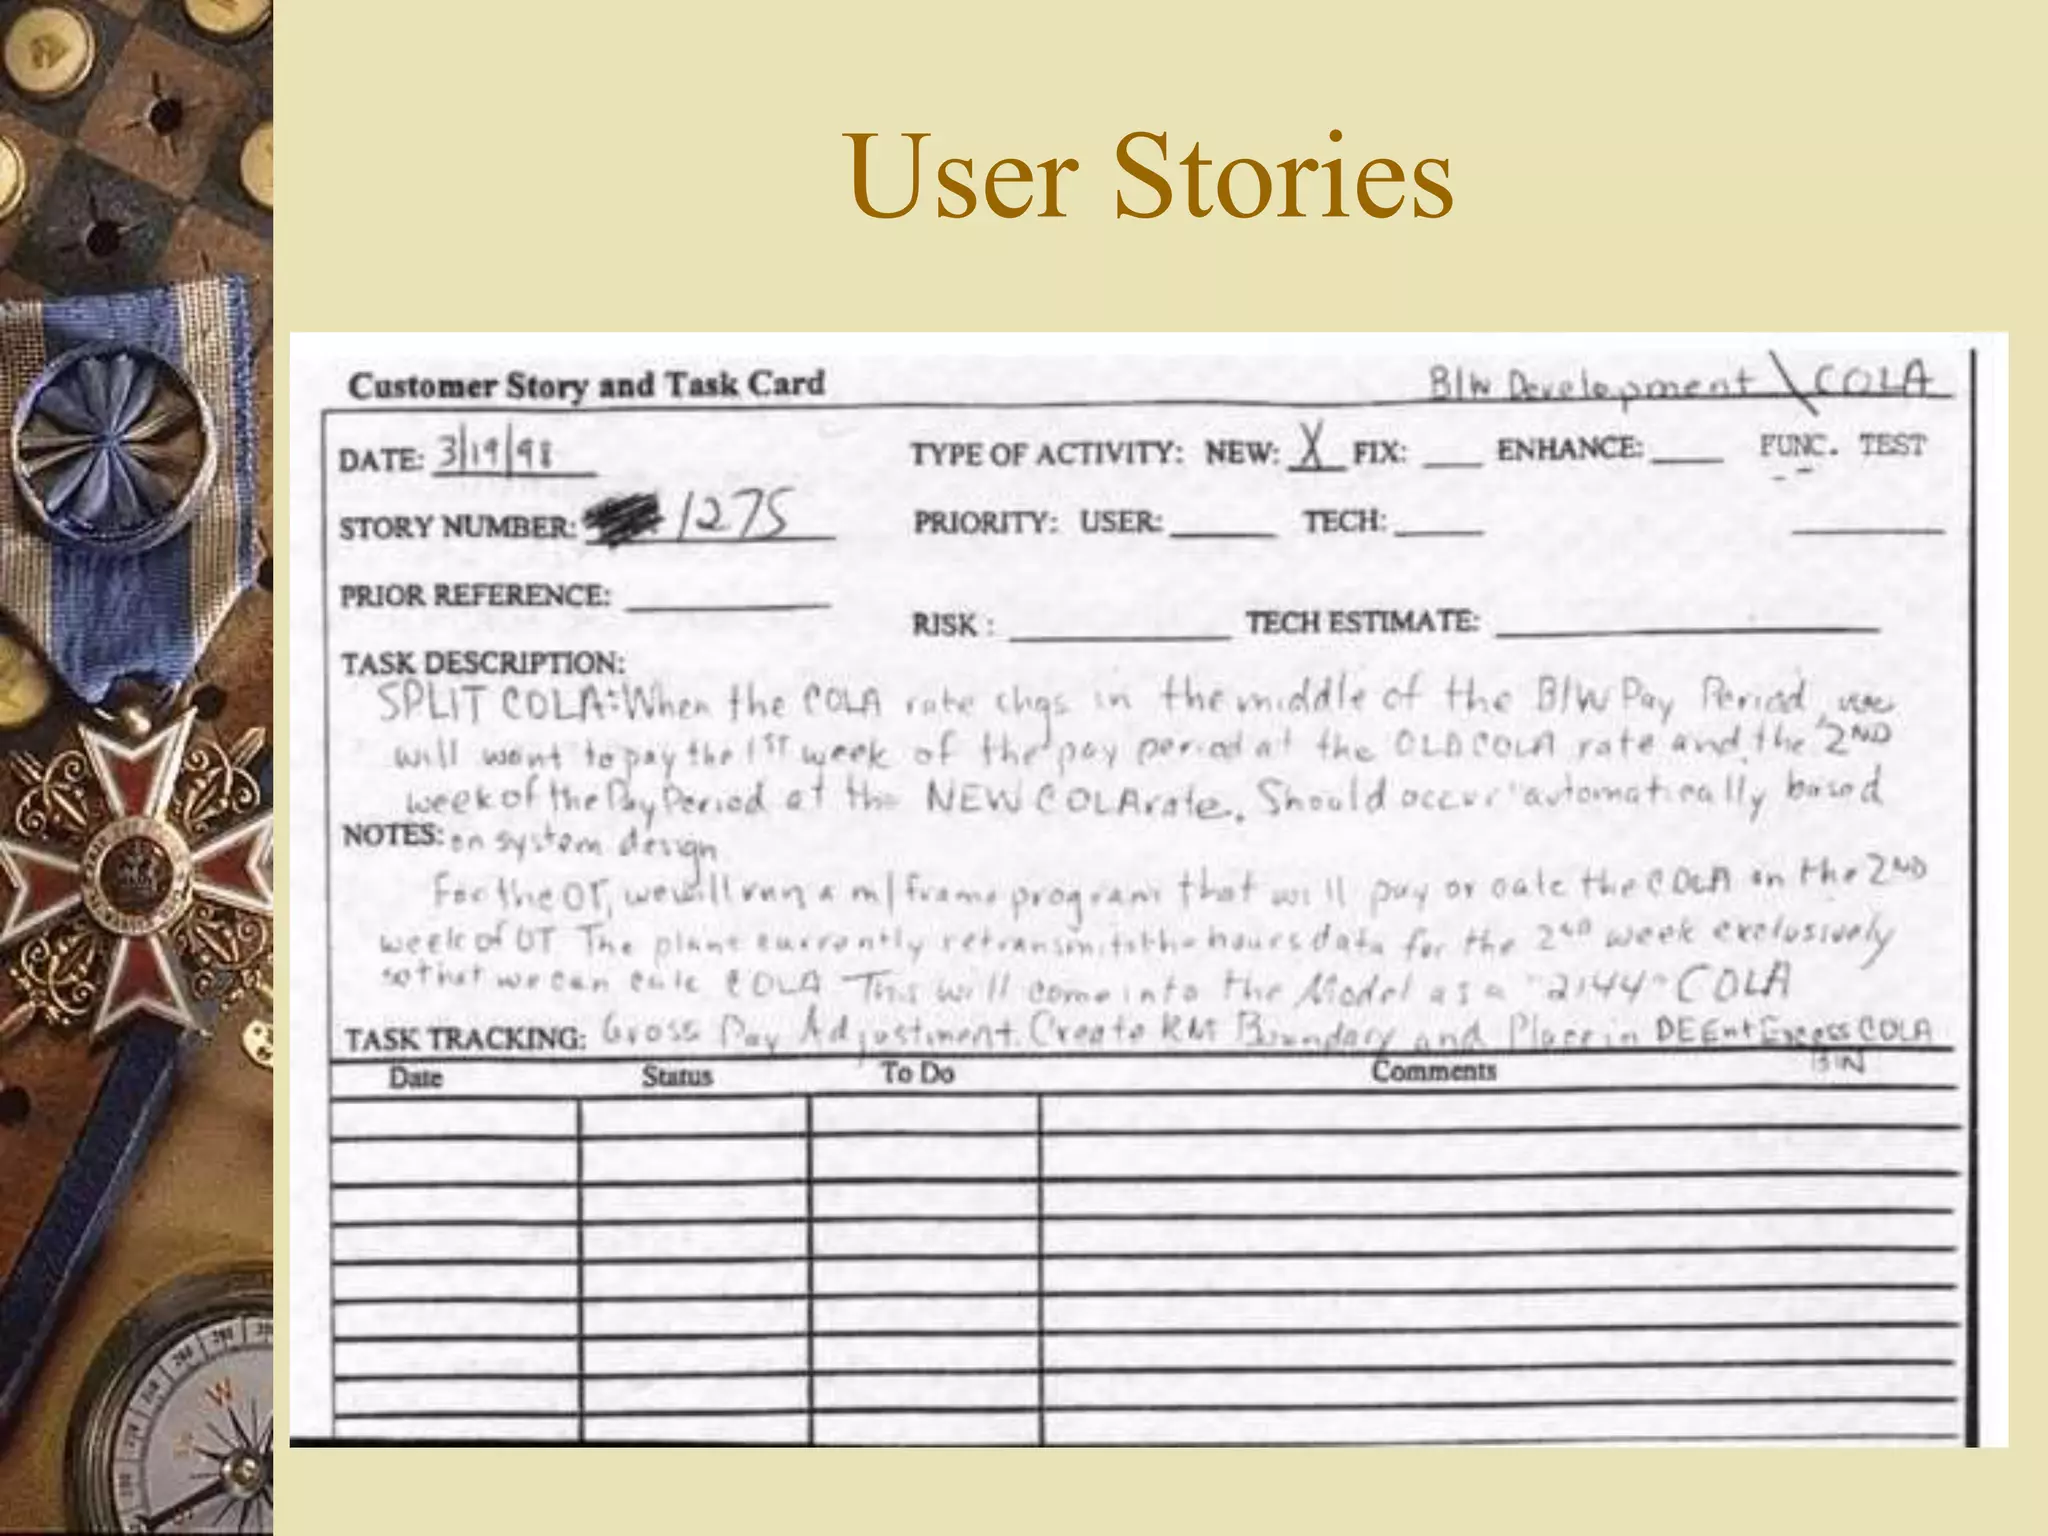 User Stories
Customer Story and Task Card B/W Development \ COLA
DATE: 3/19/98 TYPE OF ACTIVITY: NEW: X FIX: ENHANCE: FUNC. TEST
STORY NUMBER: 1275 PRIORITY: USER: TECH:
PRIOR REFERENCE:
RISK : TECH ESTIMATE:
TASK DESCRIPTION:
SPLIT COLA: When the COLA rate chgs in the middle of the B/W Pay Period, we
will want to pay the 1ST week of the pay period at the OLD COLA rate and the 2ND
week of the Pay Period at the NEW COLA rate. Should occur automatically based
NOTES: on system design
For the OT, we will run a m/frame program that will pay or calc the COLA on the 2ND
week of OT. The plant currently retransmits the hours data for the 2ND week exclusively
so that we can calc COLA. This will come into the Model as a "2144" COLA
TASK TRACKING: Gross Pay Adjustment. Create RM Boundary and Place in DEEnt Excess COLA
BIN
Date Status To Do Comments
W